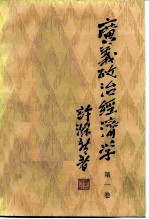 廣義政治經濟学
許涤新著
第一卷